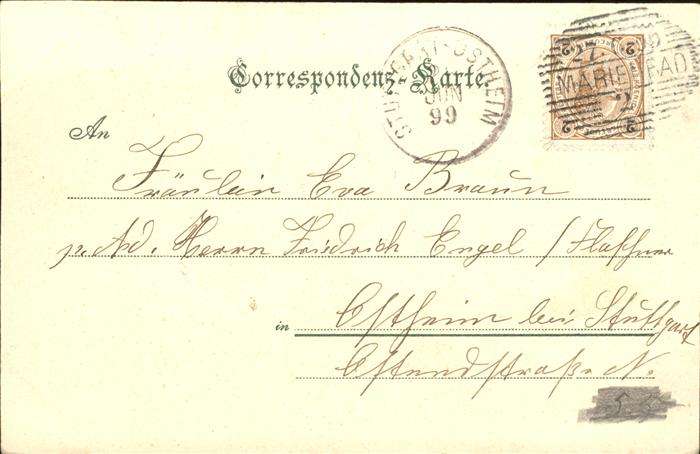 Correspondenz-Karte.
STUTTGART-OSTHEIM
JUN
99
2 2
MARIENBAD
2
2 2
An
Fräulein Eva Braun
p. Ad. Herrn Friedrich Engel / Flaschner
in Ostheim bei Stuttgart
Ostendstraße N.